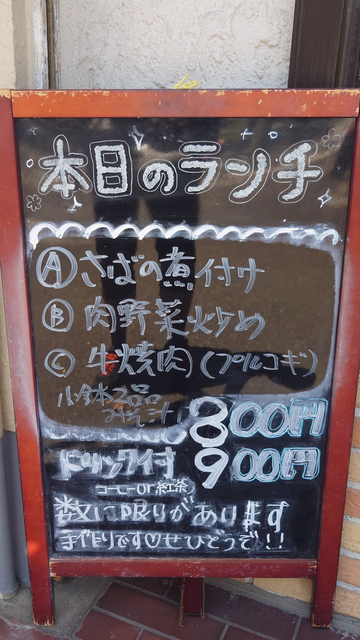 本日のランチ
Ⓐ さばの煮付け
Ⓑ 肉野菜炒め
Ⓒ 牛焼肉(プルコギ)
小鉢2品
みそ汁
800円
ドリンク付 900円
コーヒーor紅茶
数に限りがあります
手作りです♡ぜひどうぞ!!